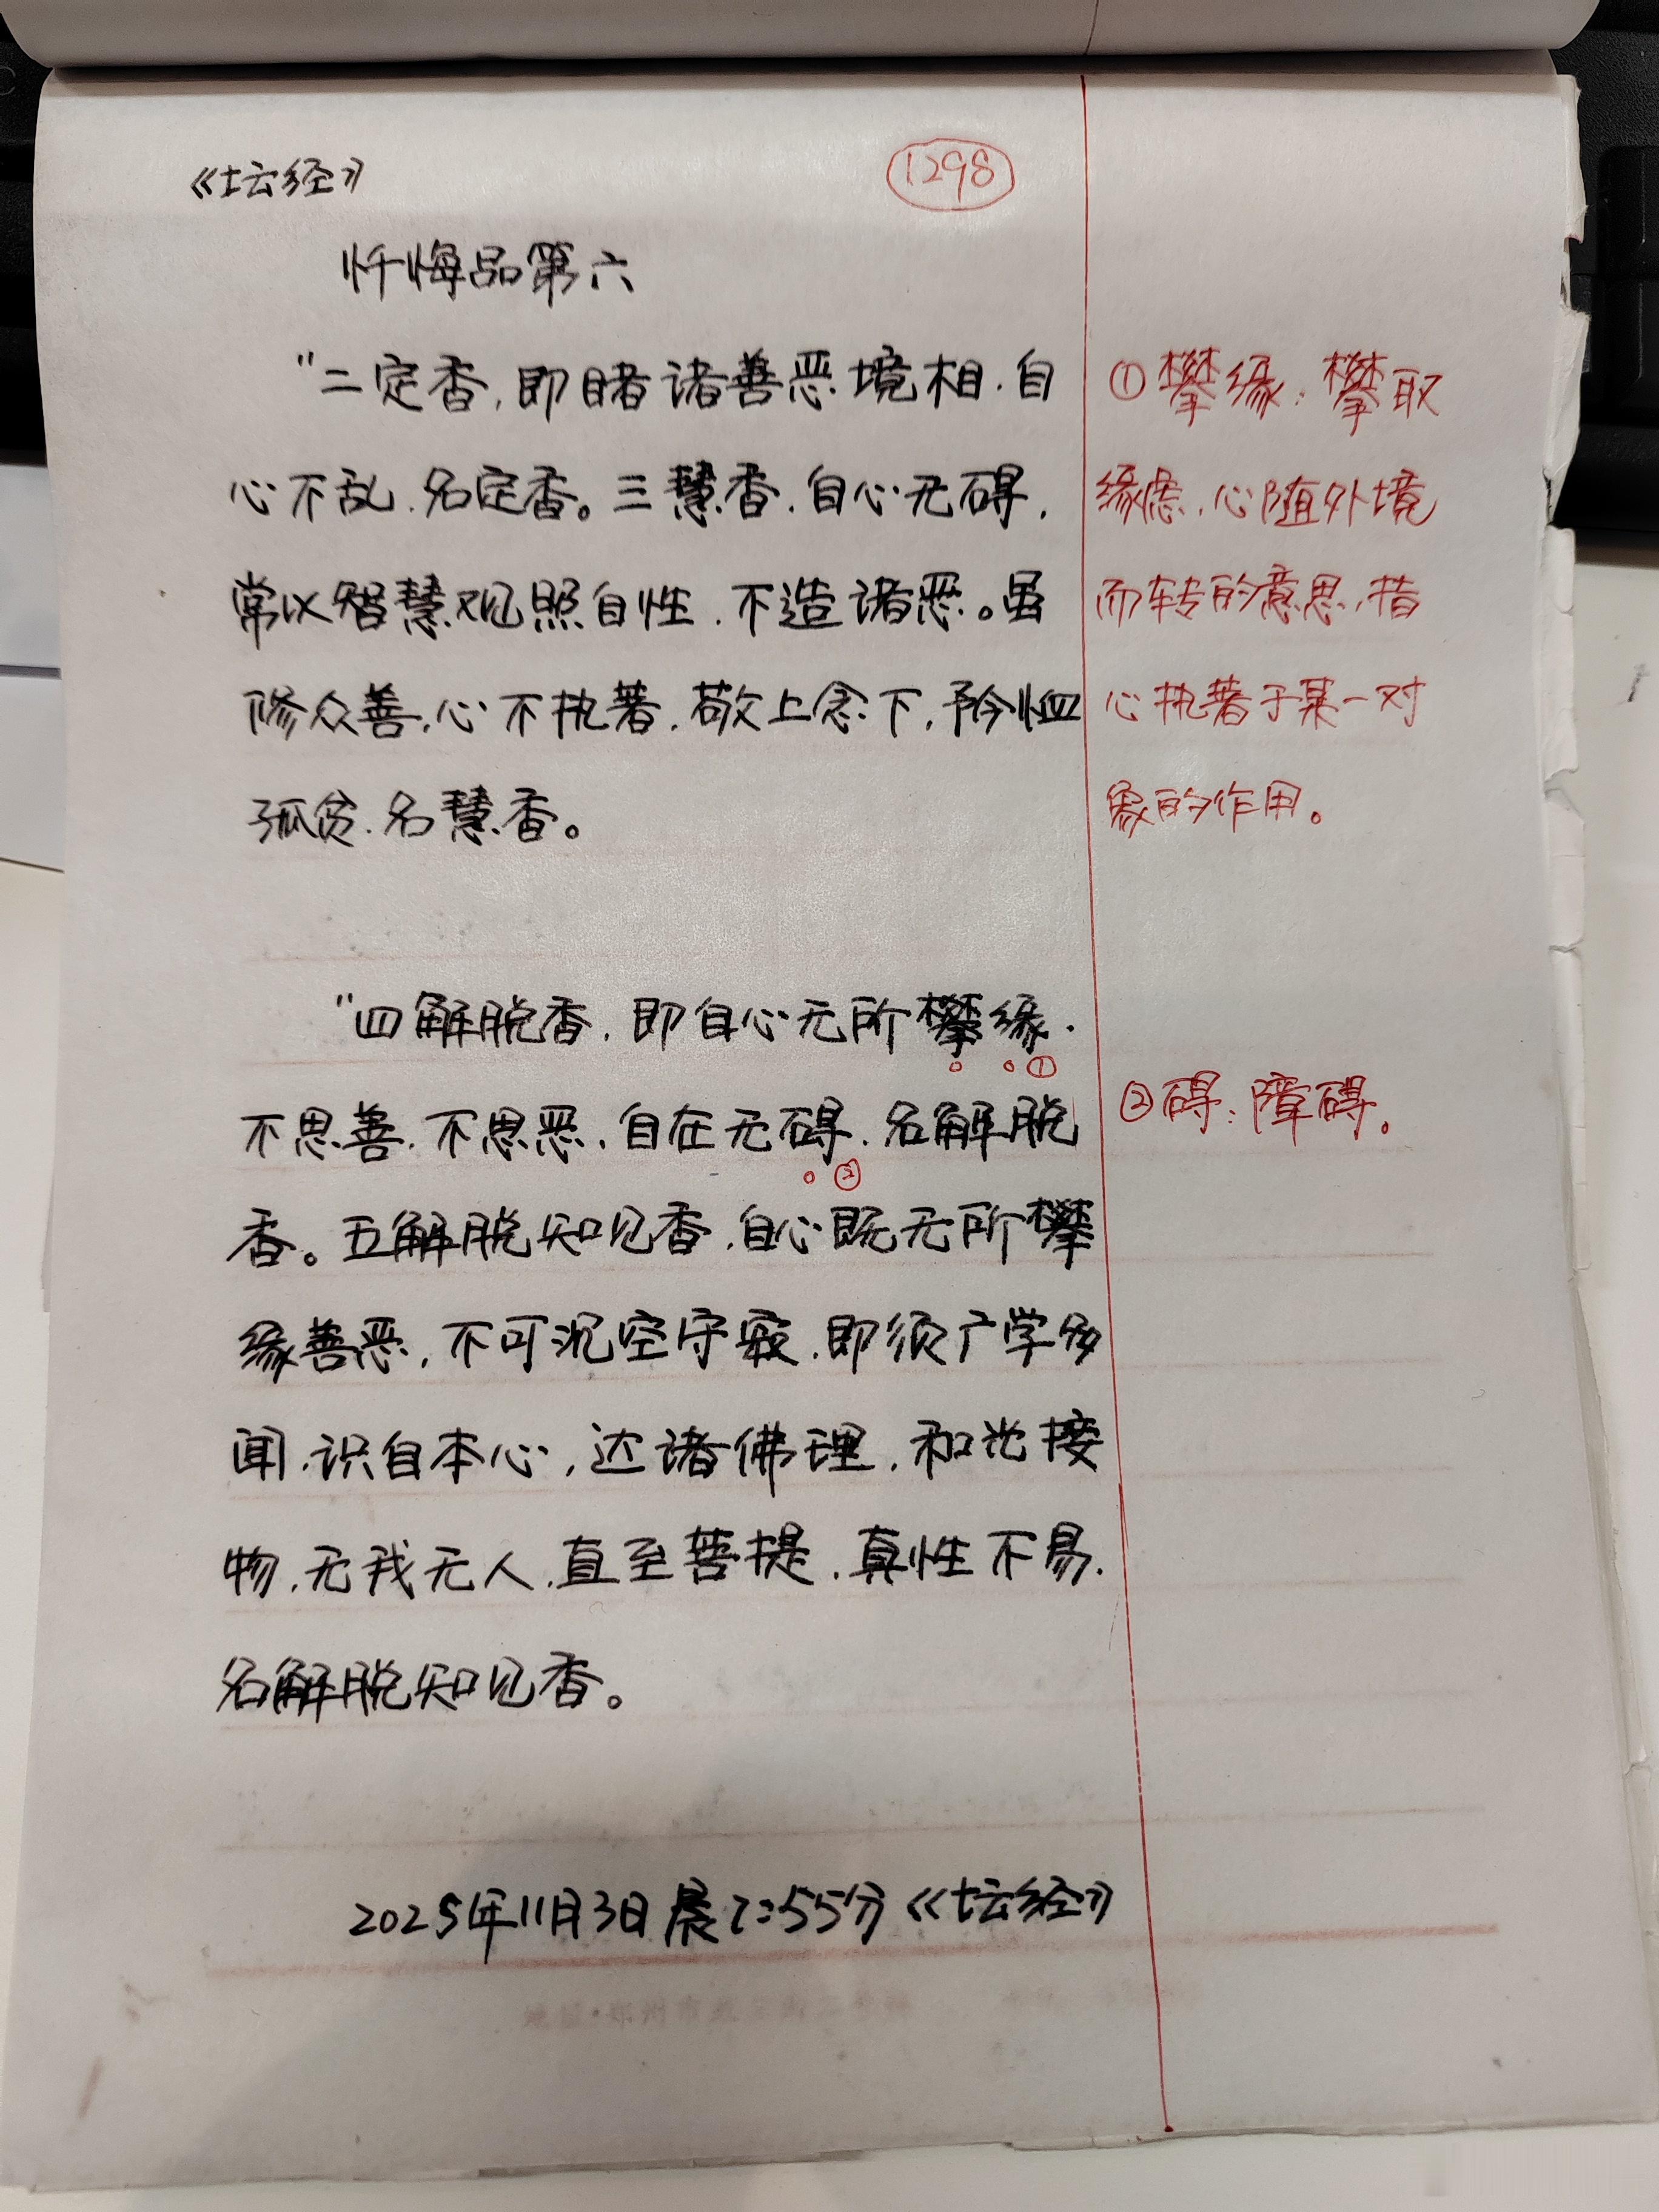 《坛经》
1298
忏悔品第六
"二定香，即睹诸善恶境相，自
心不乱，名定香。三慧香，自心无碍，
常以智慧观照自性，不造诸恶。虽
修众善，心不执著，敬上念下，矜恤
孤贫，名慧香。
"四解脱香，即自心无所攀缘，①
不思善，不思恶，自在无碍，②名解脱
香。五解脱知见香，自心既无所攀
缘善恶，不可沉空守寂，即须广学多
闻，识自本心，达诸佛理，和光接
物，无我无人，直至菩提，真性不易，
名解脱知见香。
①攀缘：攀取
缘虑，心随外境
而转的意思，指
心执著于某一对
象的作用。
②碍：障碍。
2025年11月3日晨7:55分《坛经》